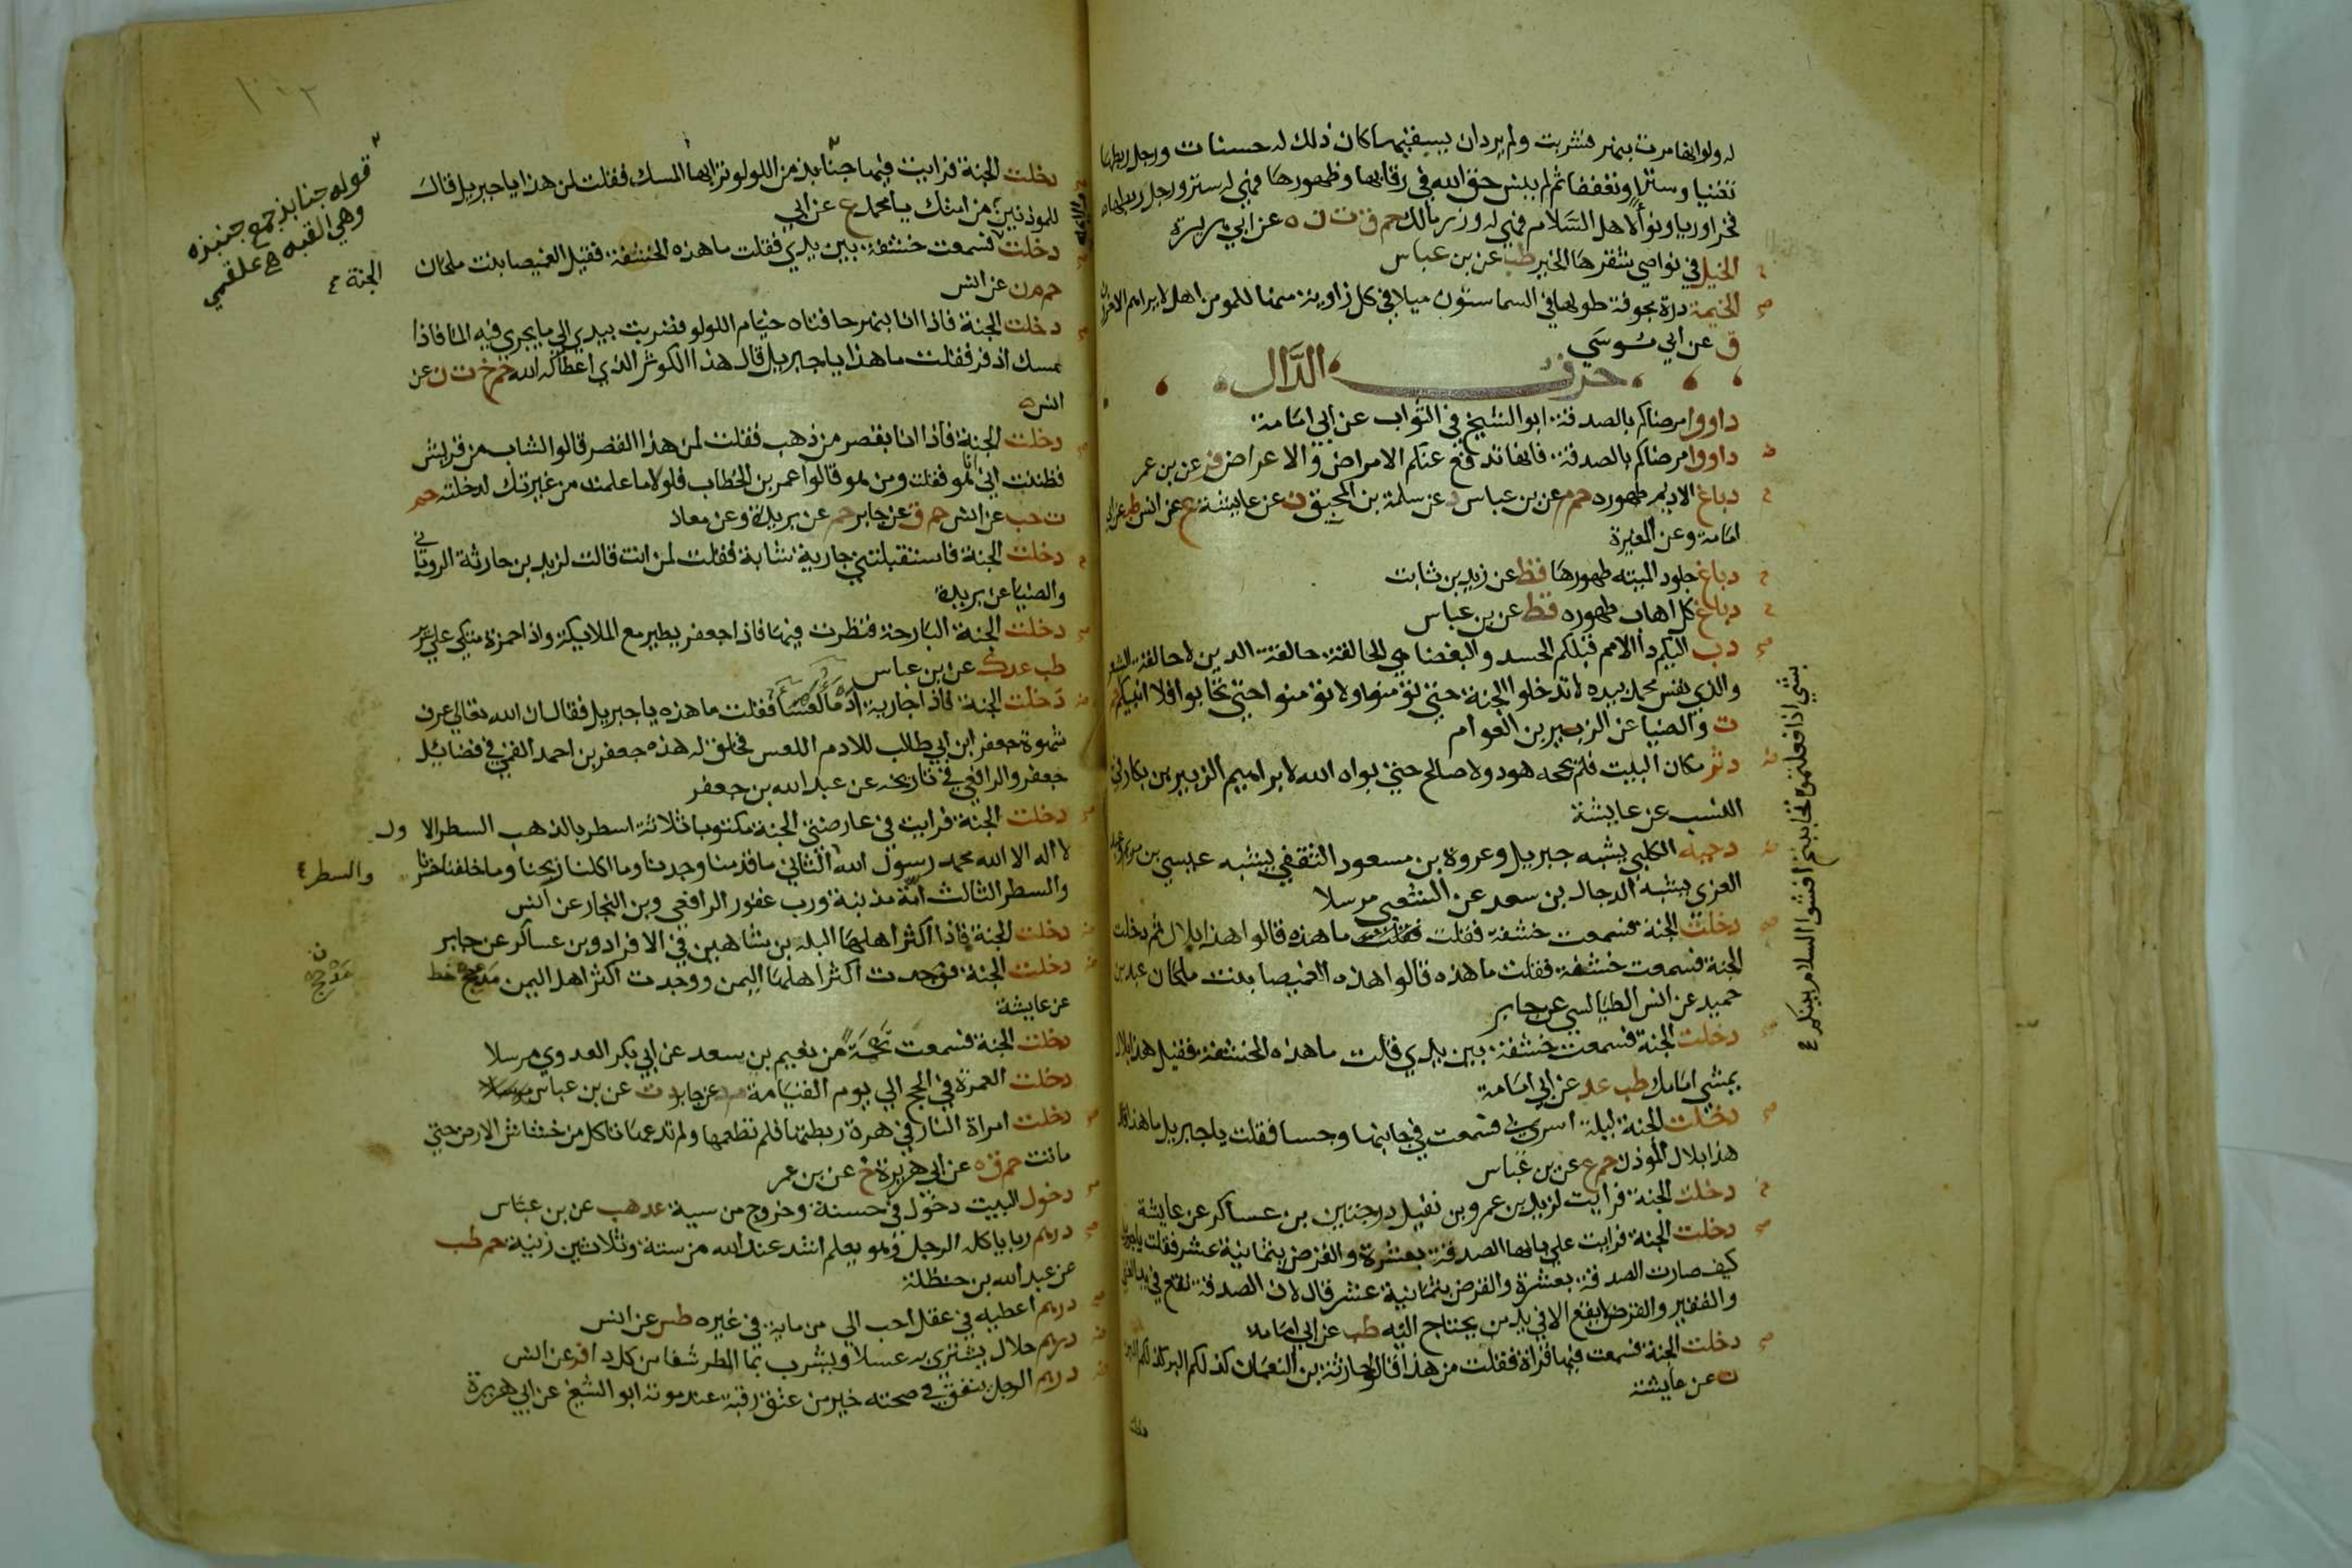 له ولو انها مرت بنهر فشربت ولم يرد ان يسقيها كان ذلك له حسنات ورجل ربطها
تغنيا وسترا وتعففا ثم لم ينس حق الله في رقابها وظهورها فهي له ستر ورجل ربطها
فخرا وريا ونوأ لاهل السلام فهي له وزر مالك حم ق ت ن ه عن ابي هريرة
الخيل في نواصي شقرها الخير طب عن بن عباس
الخيمة درة مجوفة طولها في السما ستون ميلا في كل زاوية منها للمومن اهل لا يراهم الاخرون
ق عن ابي موسي
حرف الدال
داووا مرضاكم بالصدقة ابو الشيخ في الثواب عن ابي امامة
داووا مرضاكم بالصدقة فانها تدفع عنكم الامراض والاعراض فر عن بن عمر
دباغ الاديم طهوره حم م عن بن عباس د عن سلمة بن المحبق ن عن عايشة ع عن انس طب عن ابي
امامة وعن المغيرة
دباغ جلود الميته طهورها قط عن زيد بن ثابت
دباغ كل اهاب طهوره قط عن بن عباس
دب اليكم دا الامم قبلكم الحسد والبغضا هي الحالقة حالقة الدين لا حالقة الشعر
والذي نفس محمد بيده لا تدخلوا الجنة حتي تؤمنوا ولا تؤمنوا حتي تحابوا افلا انبيكم
بشي اذا فعلتموه تحاببتم افشوا السلام بينكم
حم ت والضيا عن الزبير بن العوام
دثر مكان البيت فلم يحجه هود ولا صالح حتي بواه الله لابراهيم الزبير بن بكار في
النسب عن عايشة
دحية الكلبي يشبه جبريل وعروة بن مسعود الثقفي يشبه عيسي بن مريم وعبد
العزي يشبه الدجال بن سعد عن الشعبي مرسلا
دخلت الجنة فسمعت خشفة فقلت ما هذه قالوا هذا بلال ثم دخلت
الجنة فسمعت خشفة فقلت ما هذه قالوا هذه الغميصا بنت ملحان عبد بن
حميد عن انس الطيالسي عن جابر
دخلت الجنة فسمعت خشفة بين يدي قلت ما هذه الخشفة فقيل هذا بلال
يمشي امامك طب عد عن ابي امامة
دخلت الجنة ليلة اسري فسمعت في جانبها وجسا فقلت يا جبريل ما هذا قال
هذا بلال المؤذن حم ع عن بن عباس
دخلت الجنة فرايت لزيد بن عمرو بن نفيل درجتين بن عساكر عن عايشة
دخلت الجنة فرايت علي بابها الصدقة بعشرة والقرض بثمانية عشر فقلت يا جبريل
كيف صارت الصدقة بعشرة والقرض بثمانية عشر قال لان الصدقة تقع في يد الغني
والفقير والقرض لا يقع الا في يد من يحتاج اليه طب عن ابي امامة
دخلت الجنة فسمعت فيها قراة فقلت من هذا قالوا حارثة بن النعمان كذلكم البر كذلكم البر
ن عن عايشة
دخلت
١٠٢
دخلت الجنة فرايت فيها جنابذ من اللولو ترابها المسك فقلت لمن هذا يا جبريل قال
للموذنين من امتك يا محمد ع عن ابي
قوله جنابذ جمع جنبذه
وهي القبه علقمي
دخلت فسمعت خشفة بين يدي فقلت ما هذه الخشفة فقيل الغميصا بنت ملحان
الجنة
حم م ن عن انس
دخلت الجنة فاذا انا بنهر حافتاه خيام اللولو فضربت بيدي الي ما يجري فيه الما فاذا
مسك اذفر فقلت ما هذا يا جبريل قال هذا الكوثر الذي اعطاكه الله حم خ ت ن عن
انس
دخلت الجنة فاذا انا بقصر من ذهب فقلت لمن هذا القصر قالوا الشاب من قريش
فظننت اني انا هو فقلت ومن هو قالوا عمر بن الخطاب فلولا ما علمت من غيرتك لدخلته حم
ت حب عن انس حم ق عن جابر حم عن بريدة وعن معاذ
دخلت الجنة فاستقبلتني جارية شابة فقلت لمن انت قالت لزيد بن حارثة الروياني
والضيا عن بريدة
دخلت الجنة البارحة فنظرت فيها فاذا جعفر يطير مع الملايكة واذا حمزة متكي علي سرير
طب عد ك عن بن عباس
دخلت الجنة فاذا جارية ادما لعسا فقلت ما هذه يا جبريل فقال ان الله تعالي عرف
شهوة جعفر ابن ابي طالب للادم اللعس فخلق له هذه جعفر بن احمد القمي في فضايل
جعفر والرافعي في تاريخه عن عبد الله بن جعفر
دخلت الجنة فرايت في عارضتي الجنة مكتوبا ثلاثة اسطر بالذهب السطر الاول
لا اله الا الله محمد رسول الله الثاني ما قدمنا وجدنا وما اكلنا ربحنا وما خلفنا خسرنا
والسطر
والسطر الثالث امة مذنبة ورب غفور الرافعي وبن النجار عن انس
دخلت الجنة فاذا اكثر اهلها البله بن شاهين في الافراد وبن عساكر عن جابر
دخلت الجنة فوجدت اكثر اهلها اليمن ووجدت اكثر اهل اليمن مذحج خط
مذحج
عن عايشة
دخلت الجنة فسمعت نحمة من نعيم بن سعد عن ابي بكر العدوي مرسلا
دخلت العمرة في الحج الي يوم القيامة م د عن جابر د ت عن بن عباس
دخلت امراة النار في هرة ربطتها فلم تطعمها ولم تدعها تاكل من خشاش الارض حتي
ماتت حم ق ه عن ابي هريرة خ عن بن عمر
دخول البيت دخول في حسنة وخروج من سية عد هب عن بن عباس
درهم ربا ياكله الرجل وهو يعلم اشد عند الله من ستة وثلاثين زنية حم طب
عن عبد الله بن حنظلة
درهم اعطيه في عقل احب الي من ماية في غيره طس عن انس
درهم حلال يشتري به عسلا ويشرب بما المطر شفا من كل دا فر عن انس
درهم الرجل ينفق في صحته خير من عتق رقبة عند موته ابو الشيخ عن ابي هريرة